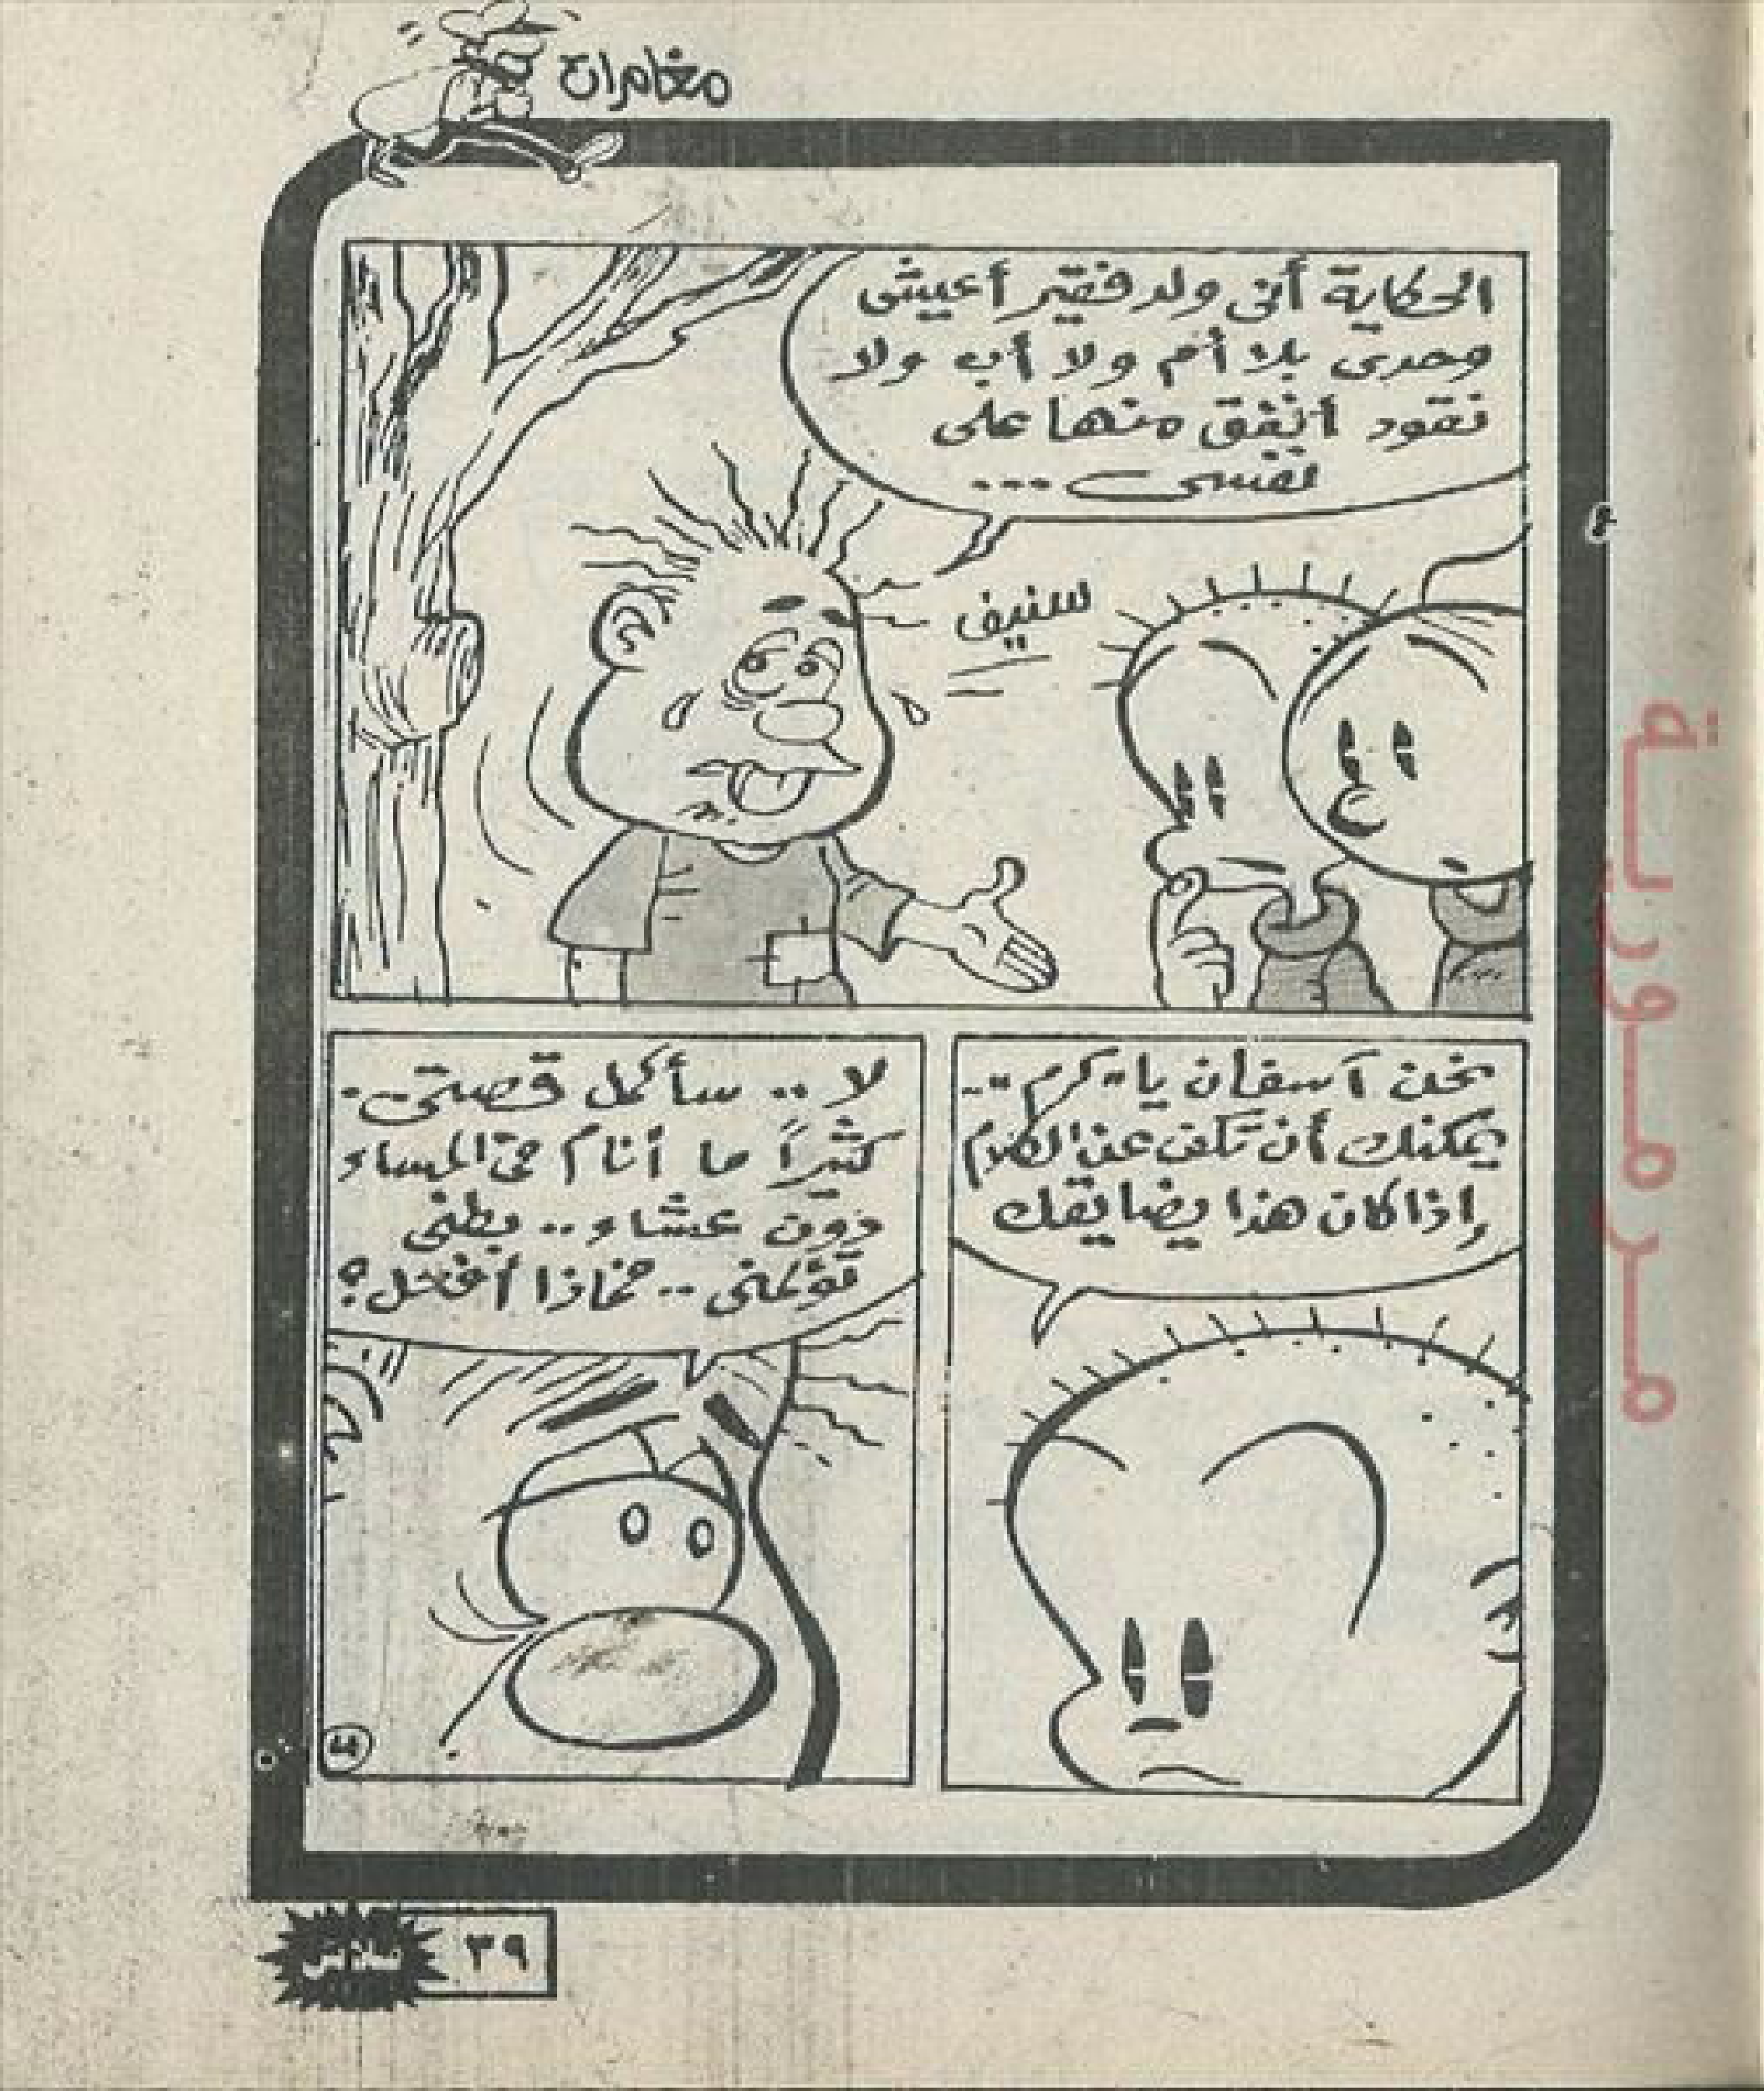 مغامرات
الحكاية أنى ولد فقير أعيش
وحدى بلا أم ولا أب ولا
نقود أنفق منها على
نفسى ...
سنيف
نحن آسفان يا كرم ..
يمكنك أن تكف عن الكلام
إذا كان هذا يضايقك
لا .. سأكمل قصتى ..
كثيراً ما أنام فى المساء
دون عشاء .. بطنى
تؤلمنى .. فماذا أفعل؟
٣٩
مرمورية